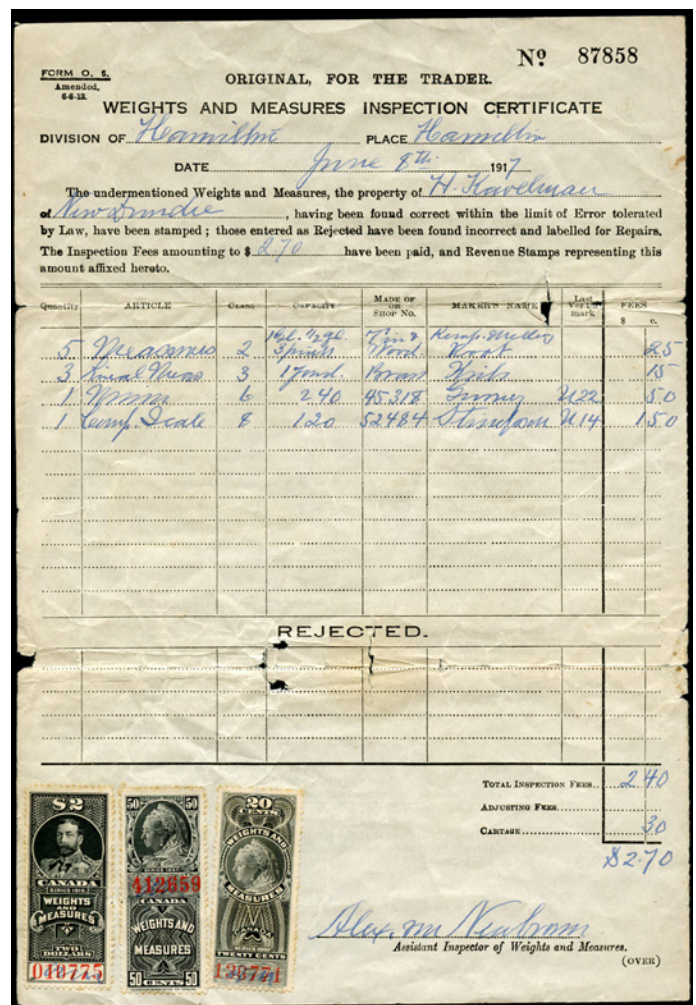 No 87858
FORM O. 6.
Amended,
6-8-13.
ORIGINAL, FOR THE TRADER.
WEIGHTS AND MEASURES INSPECTION CERTIFICATE
DIVISION OF Hamilton PLACE Hamilton
DATE June 8th 1917
The undermentioned Weights and Measures, the property of H. Kavelman
of New Dundie, having been found correct within the limit of Error tolerated
by Law, have been stamped; those entered as Rejected have been found incorrect and labelled for Repairs.
The Inspection Fees amounting to $ 2.70 have been paid, and Revenue Stamps representing this
amount affixed hereto.
Quantity ARTICLE CLASS CAPACITY MADE OF OR SHOP NO. MAKER'S NAME Last Verif'n mark FEES
$ c.
5 Measures 2 3 pints Wood 25
3 Lineal Meas 3 1 yard Brass 15
1 6 240 45318 Gurney U22 50
1 Comp. Scale 8 120 52484 Stimpson U14 1 50
REJECTED.
TOTAL INSPECTION FEES.. 2 40
ADJUSTING FEES
CARTAGE 30
$2.70
$2
CANADA
SERIES 1915
WEIGHTS
AND
MEASURES
TWO
DOLLARS
50 50
SERIES 1897
412659
CANADA
WEIGHTS AND
MEASURES
50 CENTS 50
20
CENTS
WEIGHTS AND
MEASURES
CANADA
TWENTY CENTS
Alex.
Assistant Inspector of Weights and Measures.
(OVER)